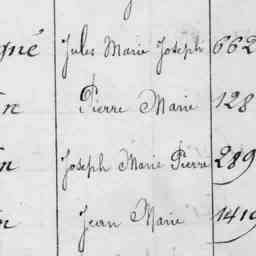 gné Jules Marie Joseph 662
n Pierre Marie 128
n Joseph Marie Pierre 289
n Jean Marie 1419